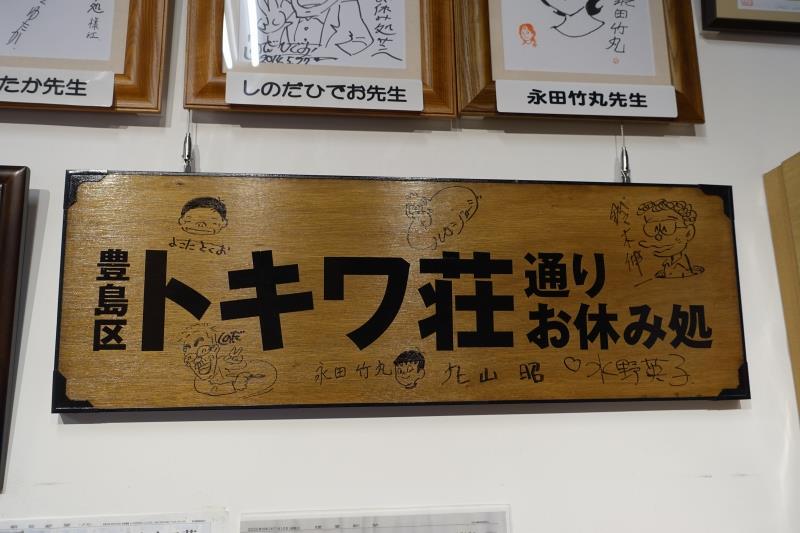 たか先生
お休み処
しのだひでお
しのだひでお先生
永田竹丸
永田竹丸先生
よこたとくお
鈴木伸一
豊島区
トキワ荘
通り
お休み処
しのだ
永田竹丸
丸山昭
♡水野英子